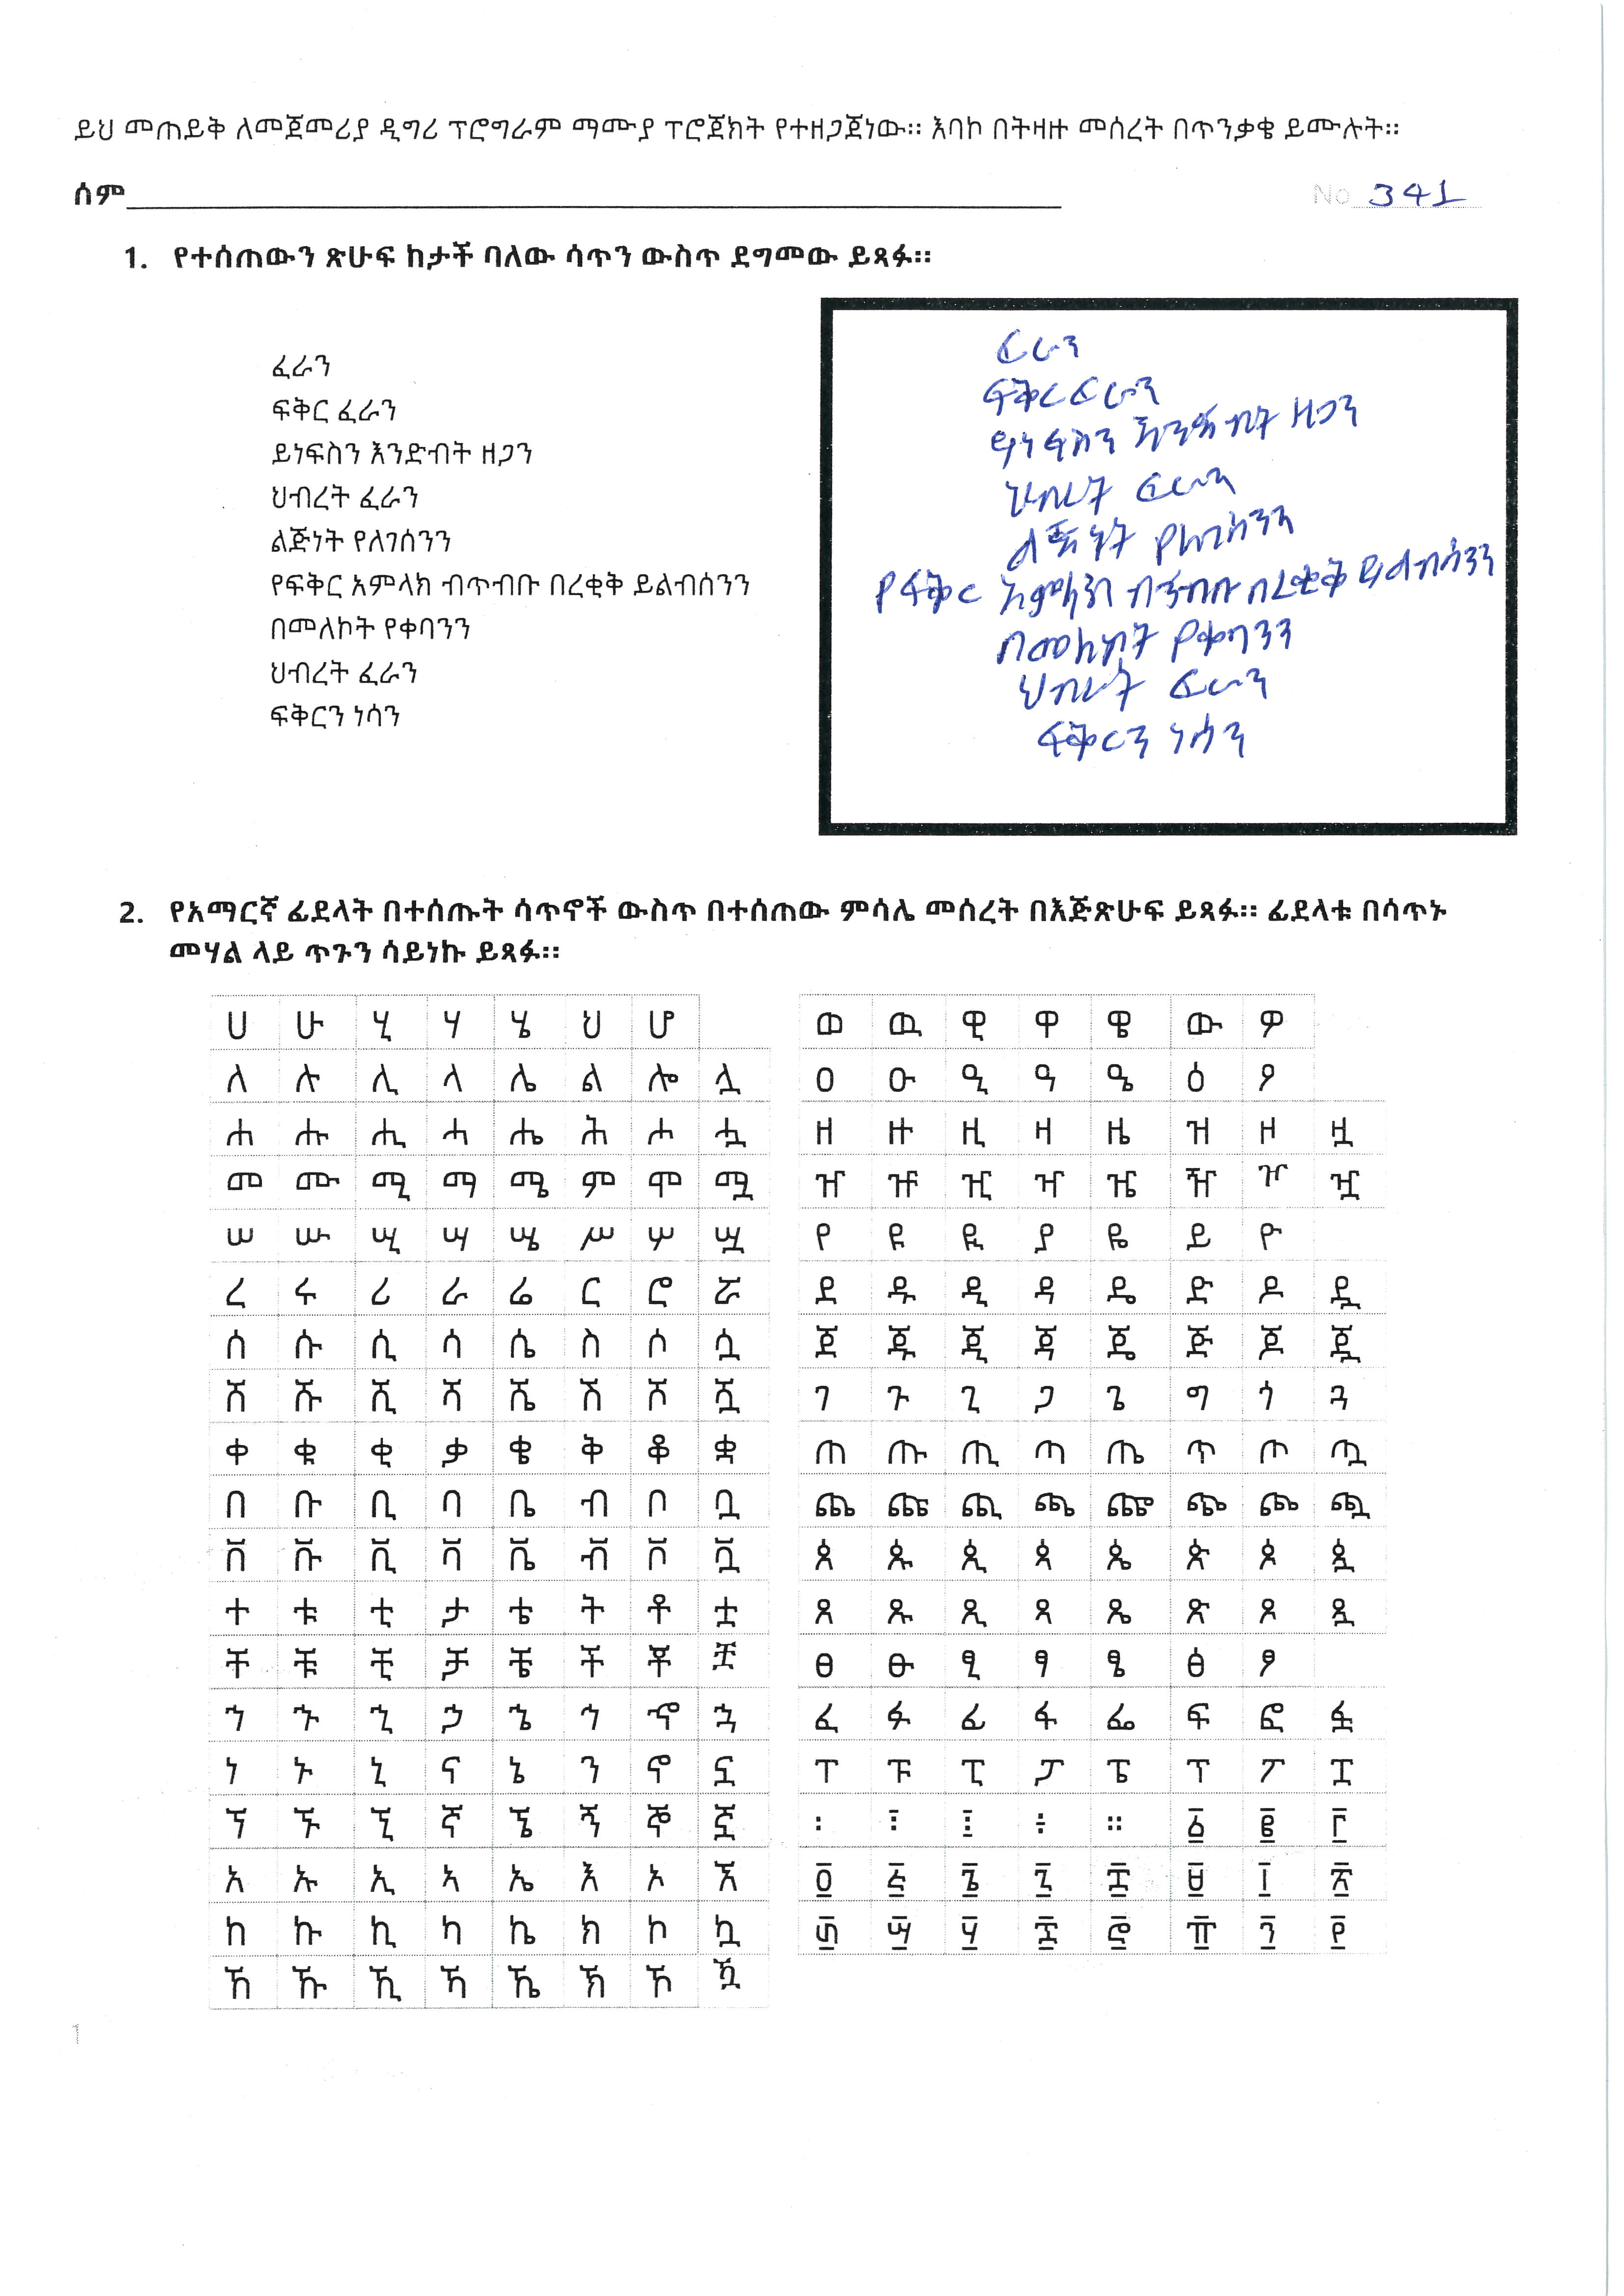 ይህ መጠይቅ ለመጀመሪያ ዲግሪ ፕሮግራም ማሙያ ፕሮጀክት የተዘጋጀነው። እባኮ በትዛዙ መሰረት በጥንቃቄ ይሙሉት።
ሰም
No 341
1. የተሰጠውን ጽሁፍ ከታች ባለው ሳጥን ውስጥ ደግመው ይጻፉ።
ፈራን
ፍቅር ፈራን
ይነፍስን እንድብት ዘጋን
ህብረት ፈራን
ልጅነት የለገሰንን
የፍቅር አምላክ ብጥብቡ በረቂቅ ይልብሰንን
በመለኮት የቀባንን
ህብረት ፈራን
ፍቅርን ነሳን
ፈራን
ፍቅር ፈራን
ይነፍስን እንድብት ዘጋን
ህብረት ፈራን
ልጅነት የለገሰንን
የፍቅር አምላክ ብጥብቡ በረቂቅ ይልብሳንን
በመለኮት የቀባንን
ህብረት ፈራን
ፍቅርን ነሳን
2. የአማርኛ ፊደላት በተሰጡት ሳጥኖች ውስጥ በተሰጠው ምሳሌ መሰረት በእጅጽሁፍ ይጻፉ። ፊደላቱ በሳጥኑ
መሃል ላይ ጥጉን ሳይነኩ ይጻፉ።
ሀ ሁ ሂ ሃ ሄ ህ ሆ
ለ ሉ ሊ ላ ሌ ል ሎ ሏ
ሐ ሑ ሒ ሓ ሔ ሕ ሖ ሗ
መ ሙ ሚ ማ ሜ ም ሞ ሟ
ሠ ሡ ሢ ሣ ሤ ሥ ሦ ሧ
ረ ሩ ሪ ራ ሬ ር ሮ ሯ
ሰ ሱ ሲ ሳ ሴ ስ ሶ ሷ
ሸ ሹ ሺ ሻ ሼ ሽ ሾ ሿ
ቀ ቁ ቂ ቃ ቄ ቅ ቆ ቋ
በ ቡ ቢ ባ ቤ ብ ቦ ቧ
ቨ ቩ ቪ ቫ ቬ ቭ ቮ ቯ
ተ ቱ ቲ ታ ቴ ት ቶ ቷ
ቸ ቹ ቺ ቻ ቼ ች ቾ ቿ
ኀ ኁ ኂ ኃ ኄ ኅ ኆ ኋ
ነ ኑ ኒ ና ኔ ን ኖ ኗ
ኘ ኙ ኚ ኛ ኜ ኝ ኞ ኟ
አ ኡ ኢ ኣ ኤ እ ኦ ኧ
ከ ኩ ኪ ካ ኬ ክ ኮ ኳ
ኸ ኹ ኺ ኻ ኼ ኽ ኾ ዃ
ወ ዉ ዊ ዋ ዌ ው ዎ
ዐ ዑ ዒ ዓ ዔ ዕ ዖ
ዘ ዙ ዚ ዛ ዜ ዝ ዞ ዟ
ዠ ዡ ዢ ዣ ዤ ዥ ዦ ዧ
የ ዩ ዪ ያ ዬ ይ ዮ
ደ ዱ ዲ ዳ ዴ ድ ዶ ዷ
ጀ ጁ ጂ ጃ ጄ ጅ ጆ ጇ
ገ ጉ ጊ ጋ ጌ ግ ጎ ጓ
ጠ ጡ ጢ ጣ ጤ ጥ ጦ ጧ
ጨ ጩ ጪ ጫ ጬ ጭ ጮ ጯ
ጰ ጱ ጲ ጳ ጴ ጵ ጶ ጷ
ጸ ጹ ጺ ጻ ጼ ጽ ጾ ጿ
ፀ ፁ ፂ ፃ ፄ ፅ ፆ
ፈ ፉ ፊ ፋ ፌ ፍ ፎ ፏ
ፐ ፑ ፒ ፓ ፔ ፕ ፖ ፗ
፡ ፣ ፤ ፥ ። ፩ ፪ ፫
፬ ፭ ፮ ፯ ፰ ፱ ፲ ፳
፴ ፵ ፶ ፷ ፸ ፹ ፺ ፻
1